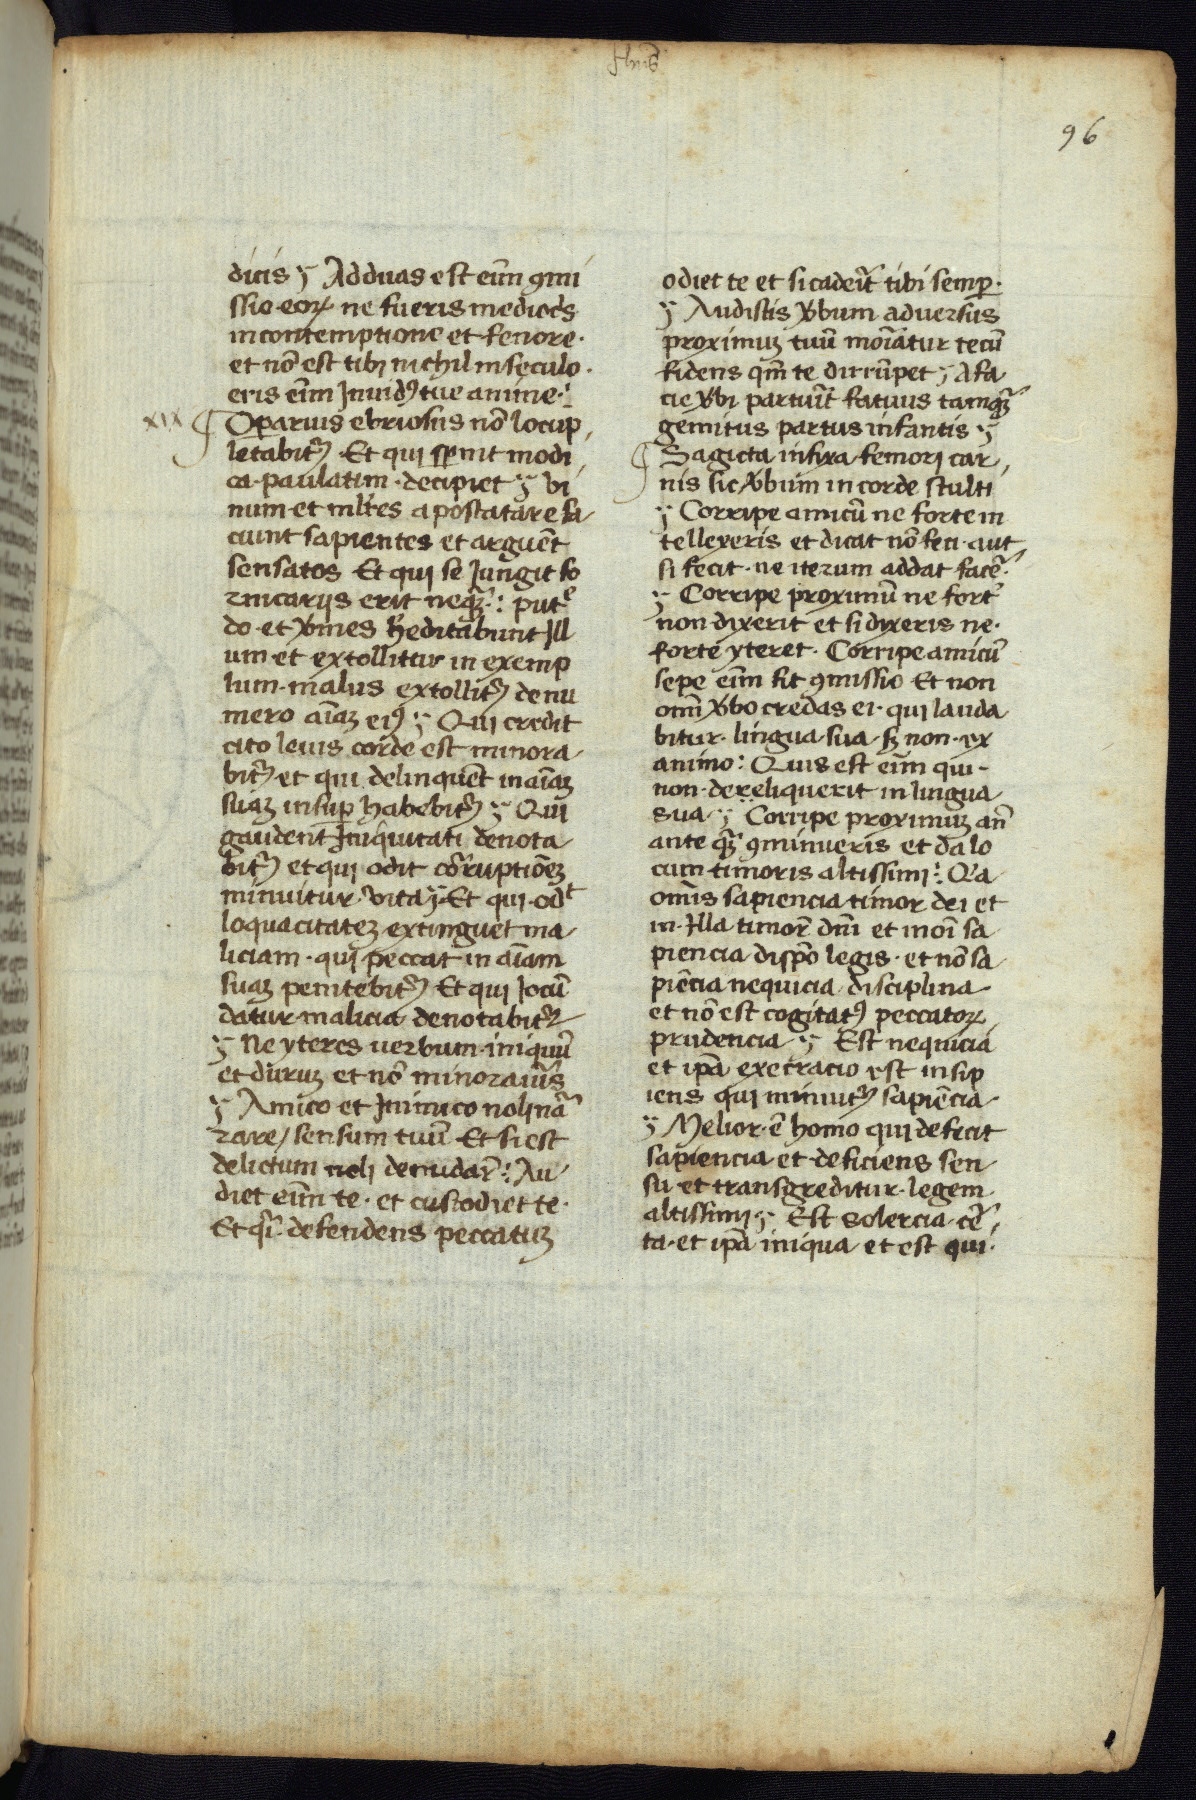 96
dicis ỿ Ad duas est eīm ꝯmi
ssio eoꝝ ne fueris mediocͥs
in contemptione et fenore ·
et nō est tibi nichil in seculo ·
eris eīm Inuidꝰ tue anime ·:
xix ¶ Operarius ebriosus nō locup
letabitͬ · Et qui spernit modi
ca · paulatim · decipiet ỿ vi
num · et mlr̄es apostatare fa
ciunt sapientes et arguēt
sensatos Et qui se Jungit fo
rnicarijs erit neqꝫ̄ ·: putͤ
do · et v̄mes h̄editabunt Ill
um · et extollitur in exemp
lum · malus extollitͬ de nu
mero aīaꝫ eiꝰ ỿ Qui credit
cito leuis corde est minora
bitͬ et qui delinquēt in aīaꝫ
suaꝫ insuꝑ habebitͬ ỿ Qui
gaudent Iniquitati denota
bitͬ et qui odit cōrruptiōeꝫ
minuitur · vita ỿ Et qui · odͭ
loquacitateꝫ extinguet ma
liciam · qui peccat in aīam
suaꝫ penitebitͬ Et qui Jocū
datur malicia denotabitͬ
ỿ Ne yteres uerbum iniquū
et duruꝫ et nō minoraūis
ỿ Amico et Inimico noli nā
rare / sensum tuū Et si est
delictum noli denudar̄ ·: Au
diet eīm te · et custodiet te ·
Et qͥ · defendens peccatuꝫ
odiet te et sic aderīt tibi semꝑ ·
ỿ Audistis v̄bum aduersus
proximuꝫ tuū morīatur tecū
fidens qm̄ te dirrūpet ỿ A fa
cie v̄bi parturīt fatuus tamqꝫ̄
gemitus partus infantis ỿ
¶ Sagicta infixa femori car
nis sic v̄bum in corde stulti
ỿ Corripe amicū ne forte in
tellexeris et dicat nō feci · aut
si fecit · ne iterum addat facē ·
ỿ Corripe proximū ne fort̄
non dixerit et si dixeris ne ·
forte yteret · Corripe amicū
sepe eīm fit ꝯmissio Et non
om̄i v̄bo credas ei · qui lauda
bitur · lingua sua · sꝫ non · ex
animo ·: Quis est eīm qui ·
non · dereliquerit in lingua
sua ỿ Corripe proximuꝫ an̄
ante qꝫ̄ ꝯminueris et da lo
cum timoris altissimi ·: Qͣa
om̄is sapiencia timor dei et
in · Illa timor̄ dn̄i et in oī sa
piencia disp̄o legis · et nō sa
piēcia nequicia disciplina
et nō est cogitatꝰ peccatoꝝ
prudencia ỿ Est nequicia
et ip̄a execracio est insip
iens qui minuitͬ sapiēcia
ỿ Melior · ē homo qui defecit
sapiencia et deficiens sen
su · et transgreditur · legem
altissimi ỿ Est solercia · cē
ta · et ip̄a iniqua et est qui ·